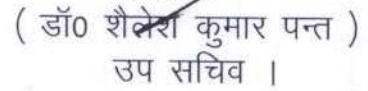 ( डॉ0 शैलेश कुमार पन्त )
उप सचिव ।